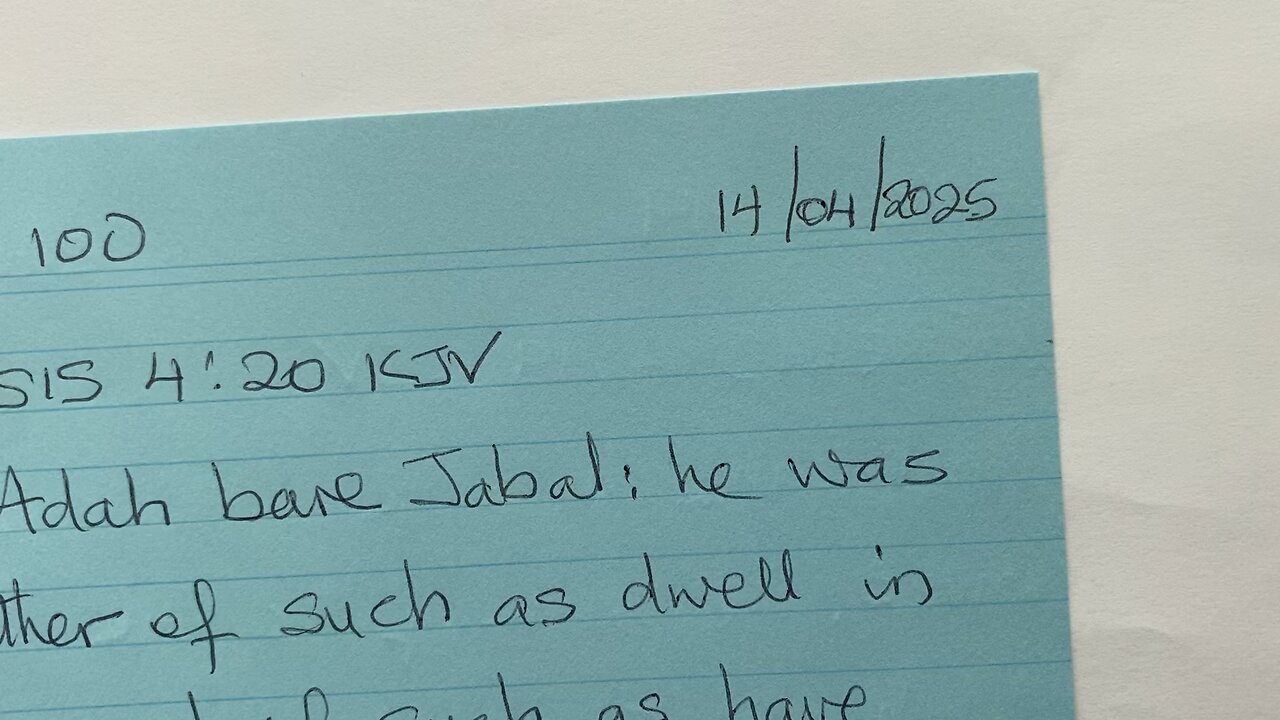 100 14/04/2025
SIS 4:20 KJV
Adah bare Jabal: he was
ther of such as dwell in
of such as have